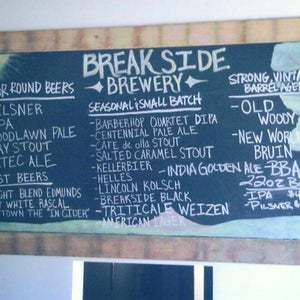 BREAKSIDE
BREWERY
R ROUND BEERS
ILSNER
PA
OODLAWN PALE
AY STOUT
TEC ALE
ST BEERS
GHT BLEND EDMUNDS
WHITE RASCAL
TOWN THE "IN CIDER"
SEASONAL & SMALL BATCH
- BARBERHOP QUARTET DIPA
- CENTENNIAL PALE ALE
- CAFE de olla STOUT
- SALTED CARAMEL STOUT
- KELLERBIER
- HELLES
- LINCOLN KOLSCH
- BREAKSIDE BLACK
- TRITICALE WEIZEN
- AMERICAN LAGER
- INDIA GOLDEN ALE
STRONG, VINTA
BARREL AGE
- OLD WOODY
- NEW WORL
BRUIN
- BBA
22oz B
IPA $
PILSNER